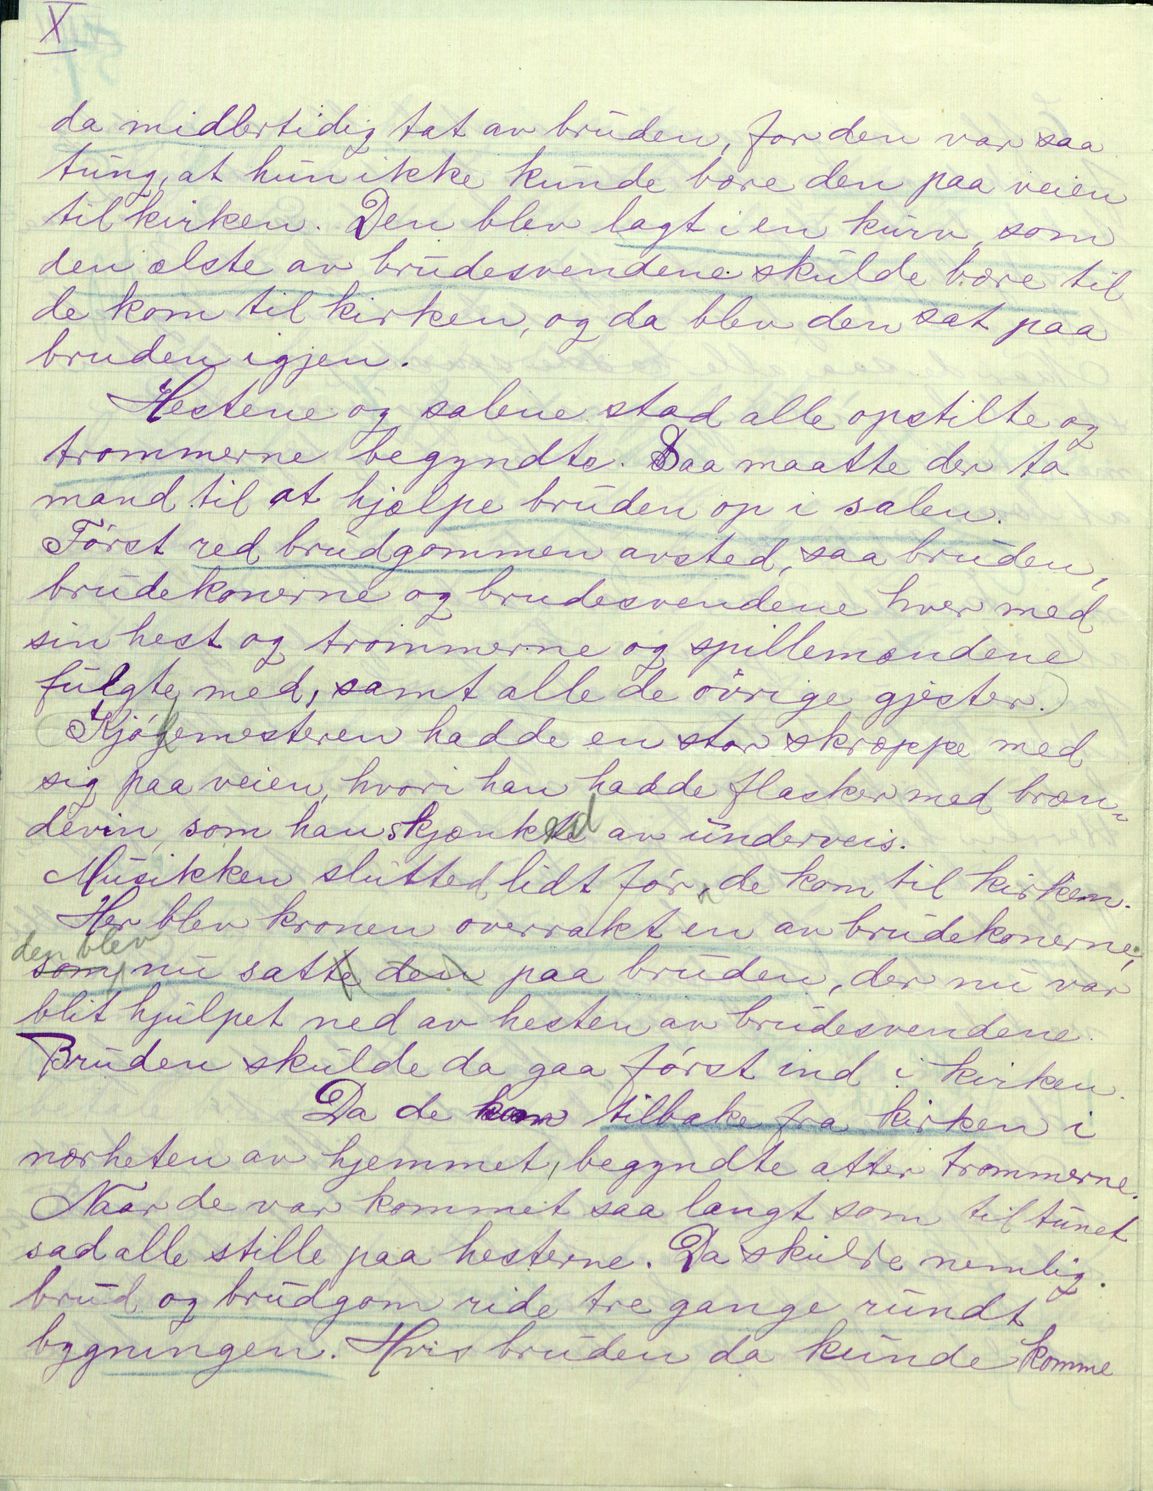 X
da midlertidig tat av bruden, for den var saa
tung, at hun ikke kunde bære den paa veien
til kirken. Den blev lagt i en kurv, som
den ælste av brudesvendene skulde bære til
de kom til kirken, og da blev den sat paa
bruden igjen.
Hestene og salene stod alle opstilte og
trommerne begyndte. Saa maatte der to
mand til at hjælpe bruden op i salen.
Først red brudgommen avsted, saa bruden,
brudekonerne og brudesvendene hver med
sin hest og trommerne og spillemændene
fulgte med, samt alle de øvrige gjester.)
(Kjøgemesteren hadde en stor skræppe med
sig paa veien, hvori han hadde flasker med bræn-
devin, som han skjænked av underveis.
Musikken slutted lidt før, de kom til kirken.
Her blev kronen overrakt en av brudekonerne;
den blev
som nu satte den paa bruden, der nu var
blit hjulpet ned av hesten av brudesvendene.
Bruden skulde da gaa først ind i kirken.
Da de kom tilbake fra kirken i
nærheten av hjemmet, begyndte atter trommerne.
Naar de var kommet saa langt som til tunet
sad alle stille paa hesterne. Da skulde nemlig
brud og brudgom ride tre gange rundt
bygningen. Hvis bruden da kunde komme